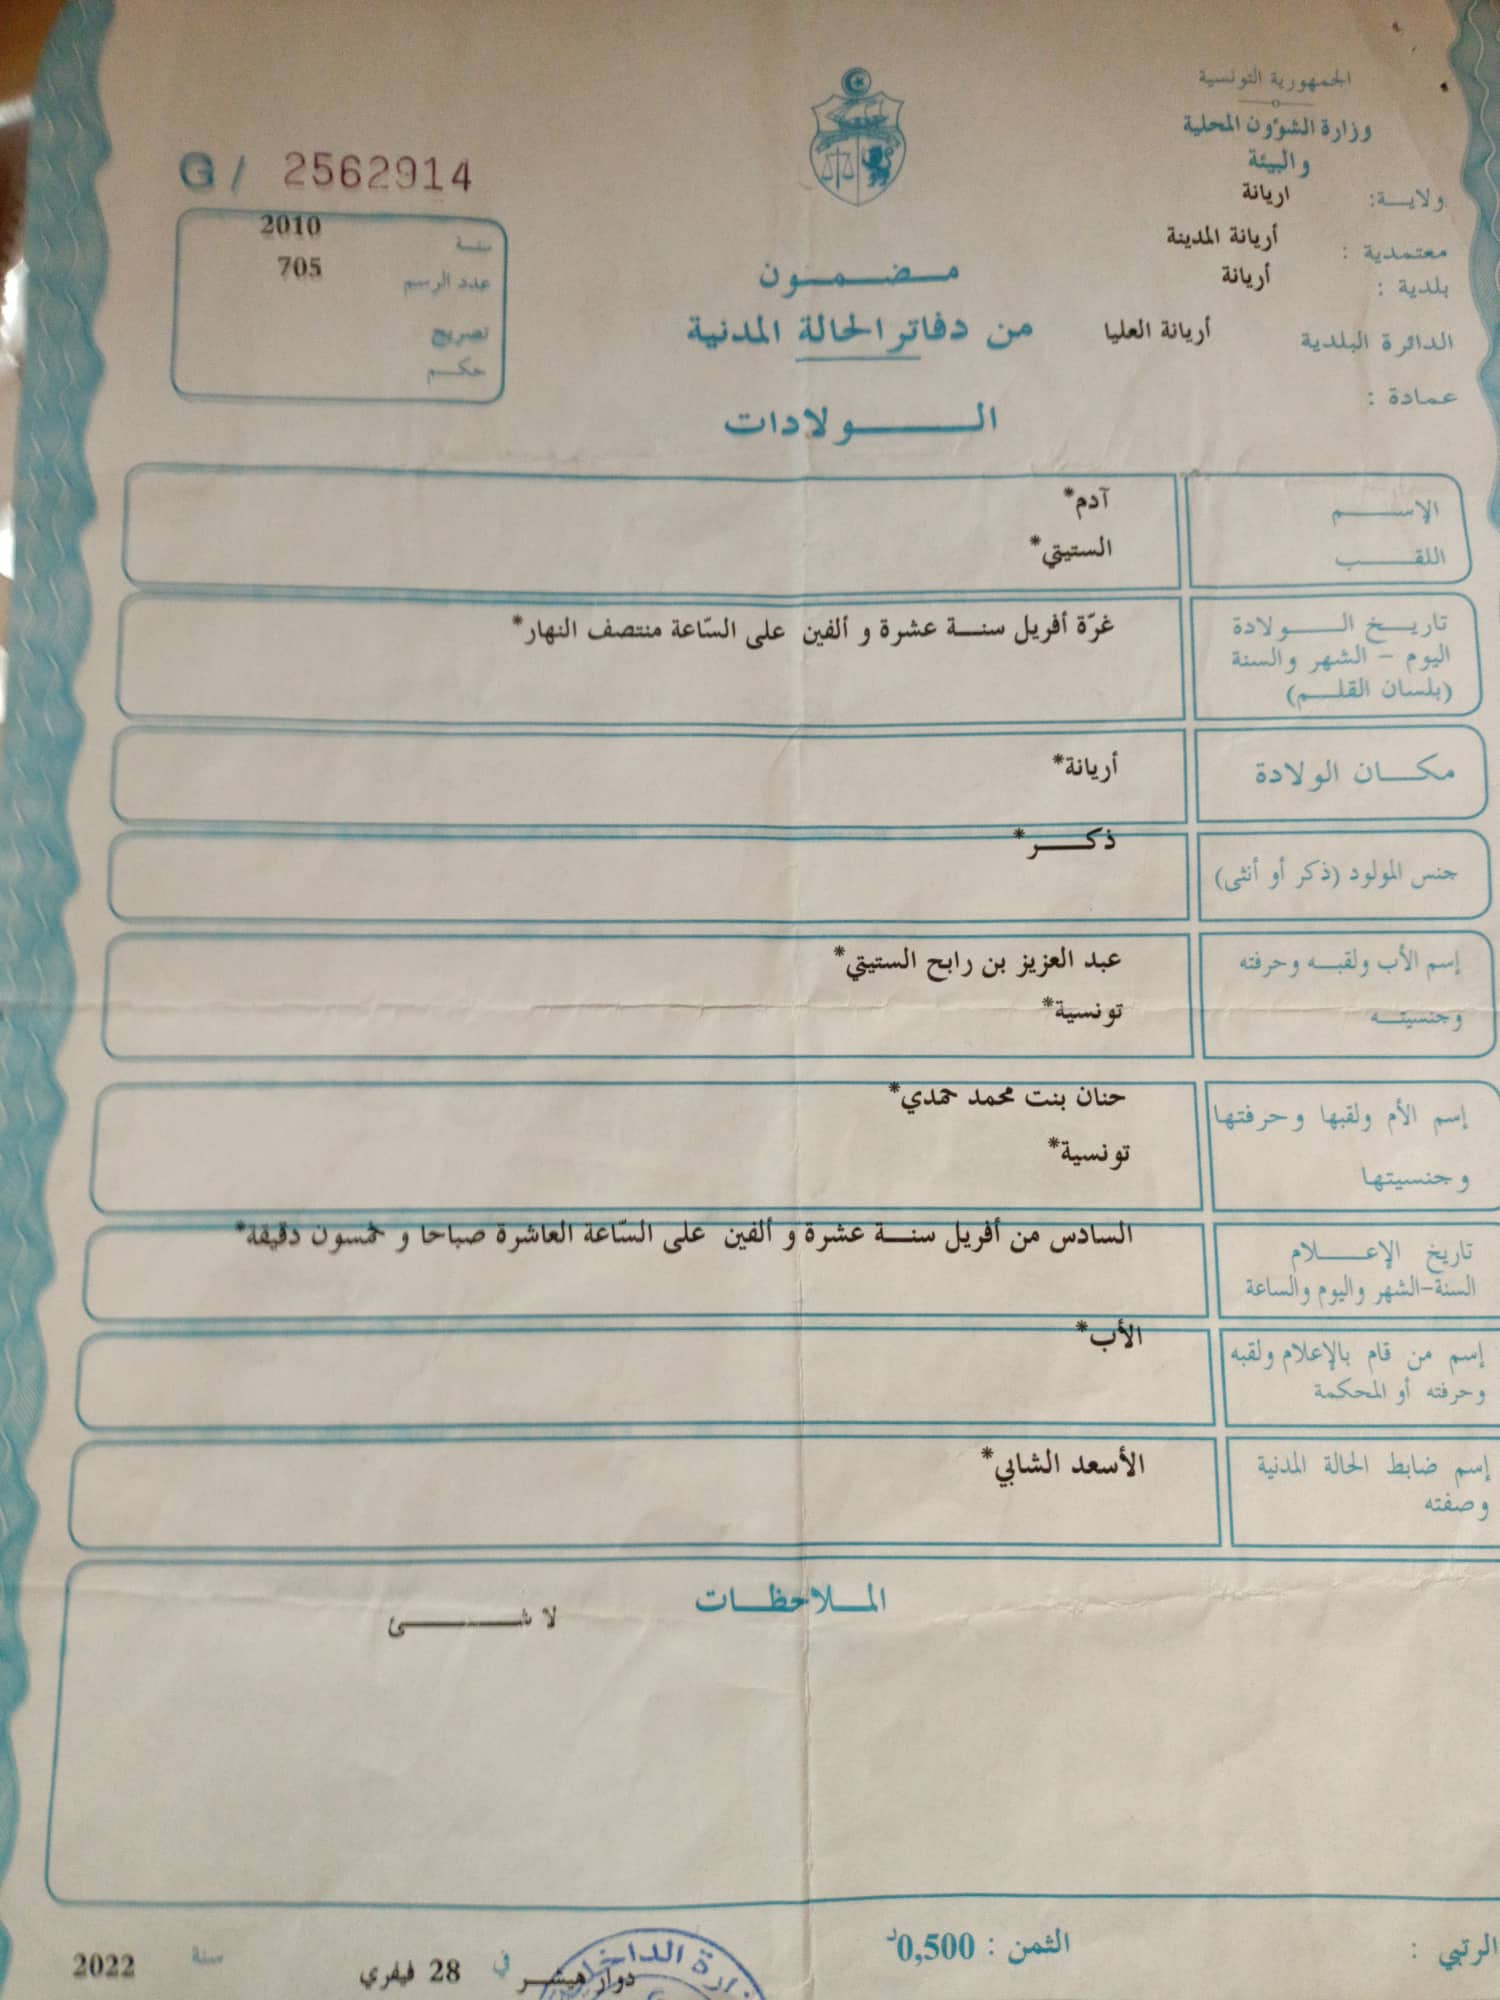 الجمهورية التونسية
وزارة الشؤون المحلية
والبيئة
ولاية: اريانة
معتمدية : أريانة المدينة
بلدية : أريانة
الدائرة البلدية أريانة العليا
عمادة :
G / 2562914
سنة 2010
عدد الرسم 705
تصريح
حكم
مضمون
من دفاتر الحالة المدنية
الولادات
الإسم آدم*
اللقب الستيتي*
تاريخ الولادة غرّة أفريل سنة عشرة و ألفين على السّاعة منتصف النهار*
اليوم - الشهر والسنة
(بلسان القلم)
مكان الولادة أريانة*
جنس المولود (ذكر أو أنثى) ذكر*
إسم الأب ولقبه وحرفته عبد العزيز بن رابح الستيتي*
وجنسيته تونسية*
إسم الأم ولقبها وحرفتها حنان بنت محمد حمدي*
وجنسيتها تونسية*
تاريخ الإعلام السادس من أفريل سنة عشرة و ألفين على السّاعة العاشرة صباحا و خمسون دقيقة*
السنة-الشهر واليوم والساعة
إسم من قام بالإعلام ولقبه الأب*
وحرفته أو المحكمة
إسم ضابط الحالة المدنية الأسعد الشابي*
وصفته
الملاحظات
لا شئ
الرتبي : الثمن : 0,500د
وزارة الداخلية
دوار هيشر في 28 فيفري سنة 2022